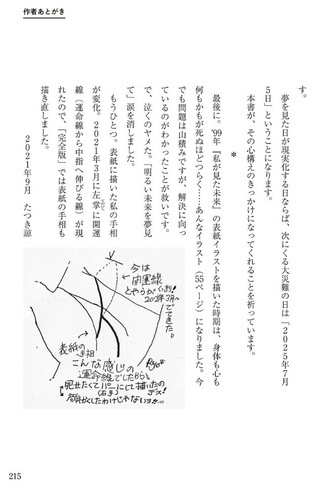 作者あとがき
す。
夢を見た日が現実化する日ならば、次にくる大災難の日は「2025年7月
5日」ということになります。
本書が、その心構えのきっかけになってくれることを祈っています。
*
最後に。'99年『私が見た未来』の表紙イラストを描いた時期は、身体も心も
何もかもが死ぬほどつらく……あんなイラスト(55ページ)になりました。今
でも問題は山積みですが、解決に向っ
ているのがわかったことが救いです。
で、泣くのヤメた。「明るい未来を夢見
て」涙を消しました。
もうひとつ。表紙に描いた私の手相
が変化。2021年3月に左掌に開運
線(運命線から中指へ伸びる線)が現
れたので、「完全版」では表紙の手相も
描き直しました。
2021年9月 たつき諒
今は
開運線
とやらがくっきり!
2021年3月〜
でてきた。
表紙の
手相
こんな感じの
運命線でしたから
見せたくてパーにして描いたの
デス!
215